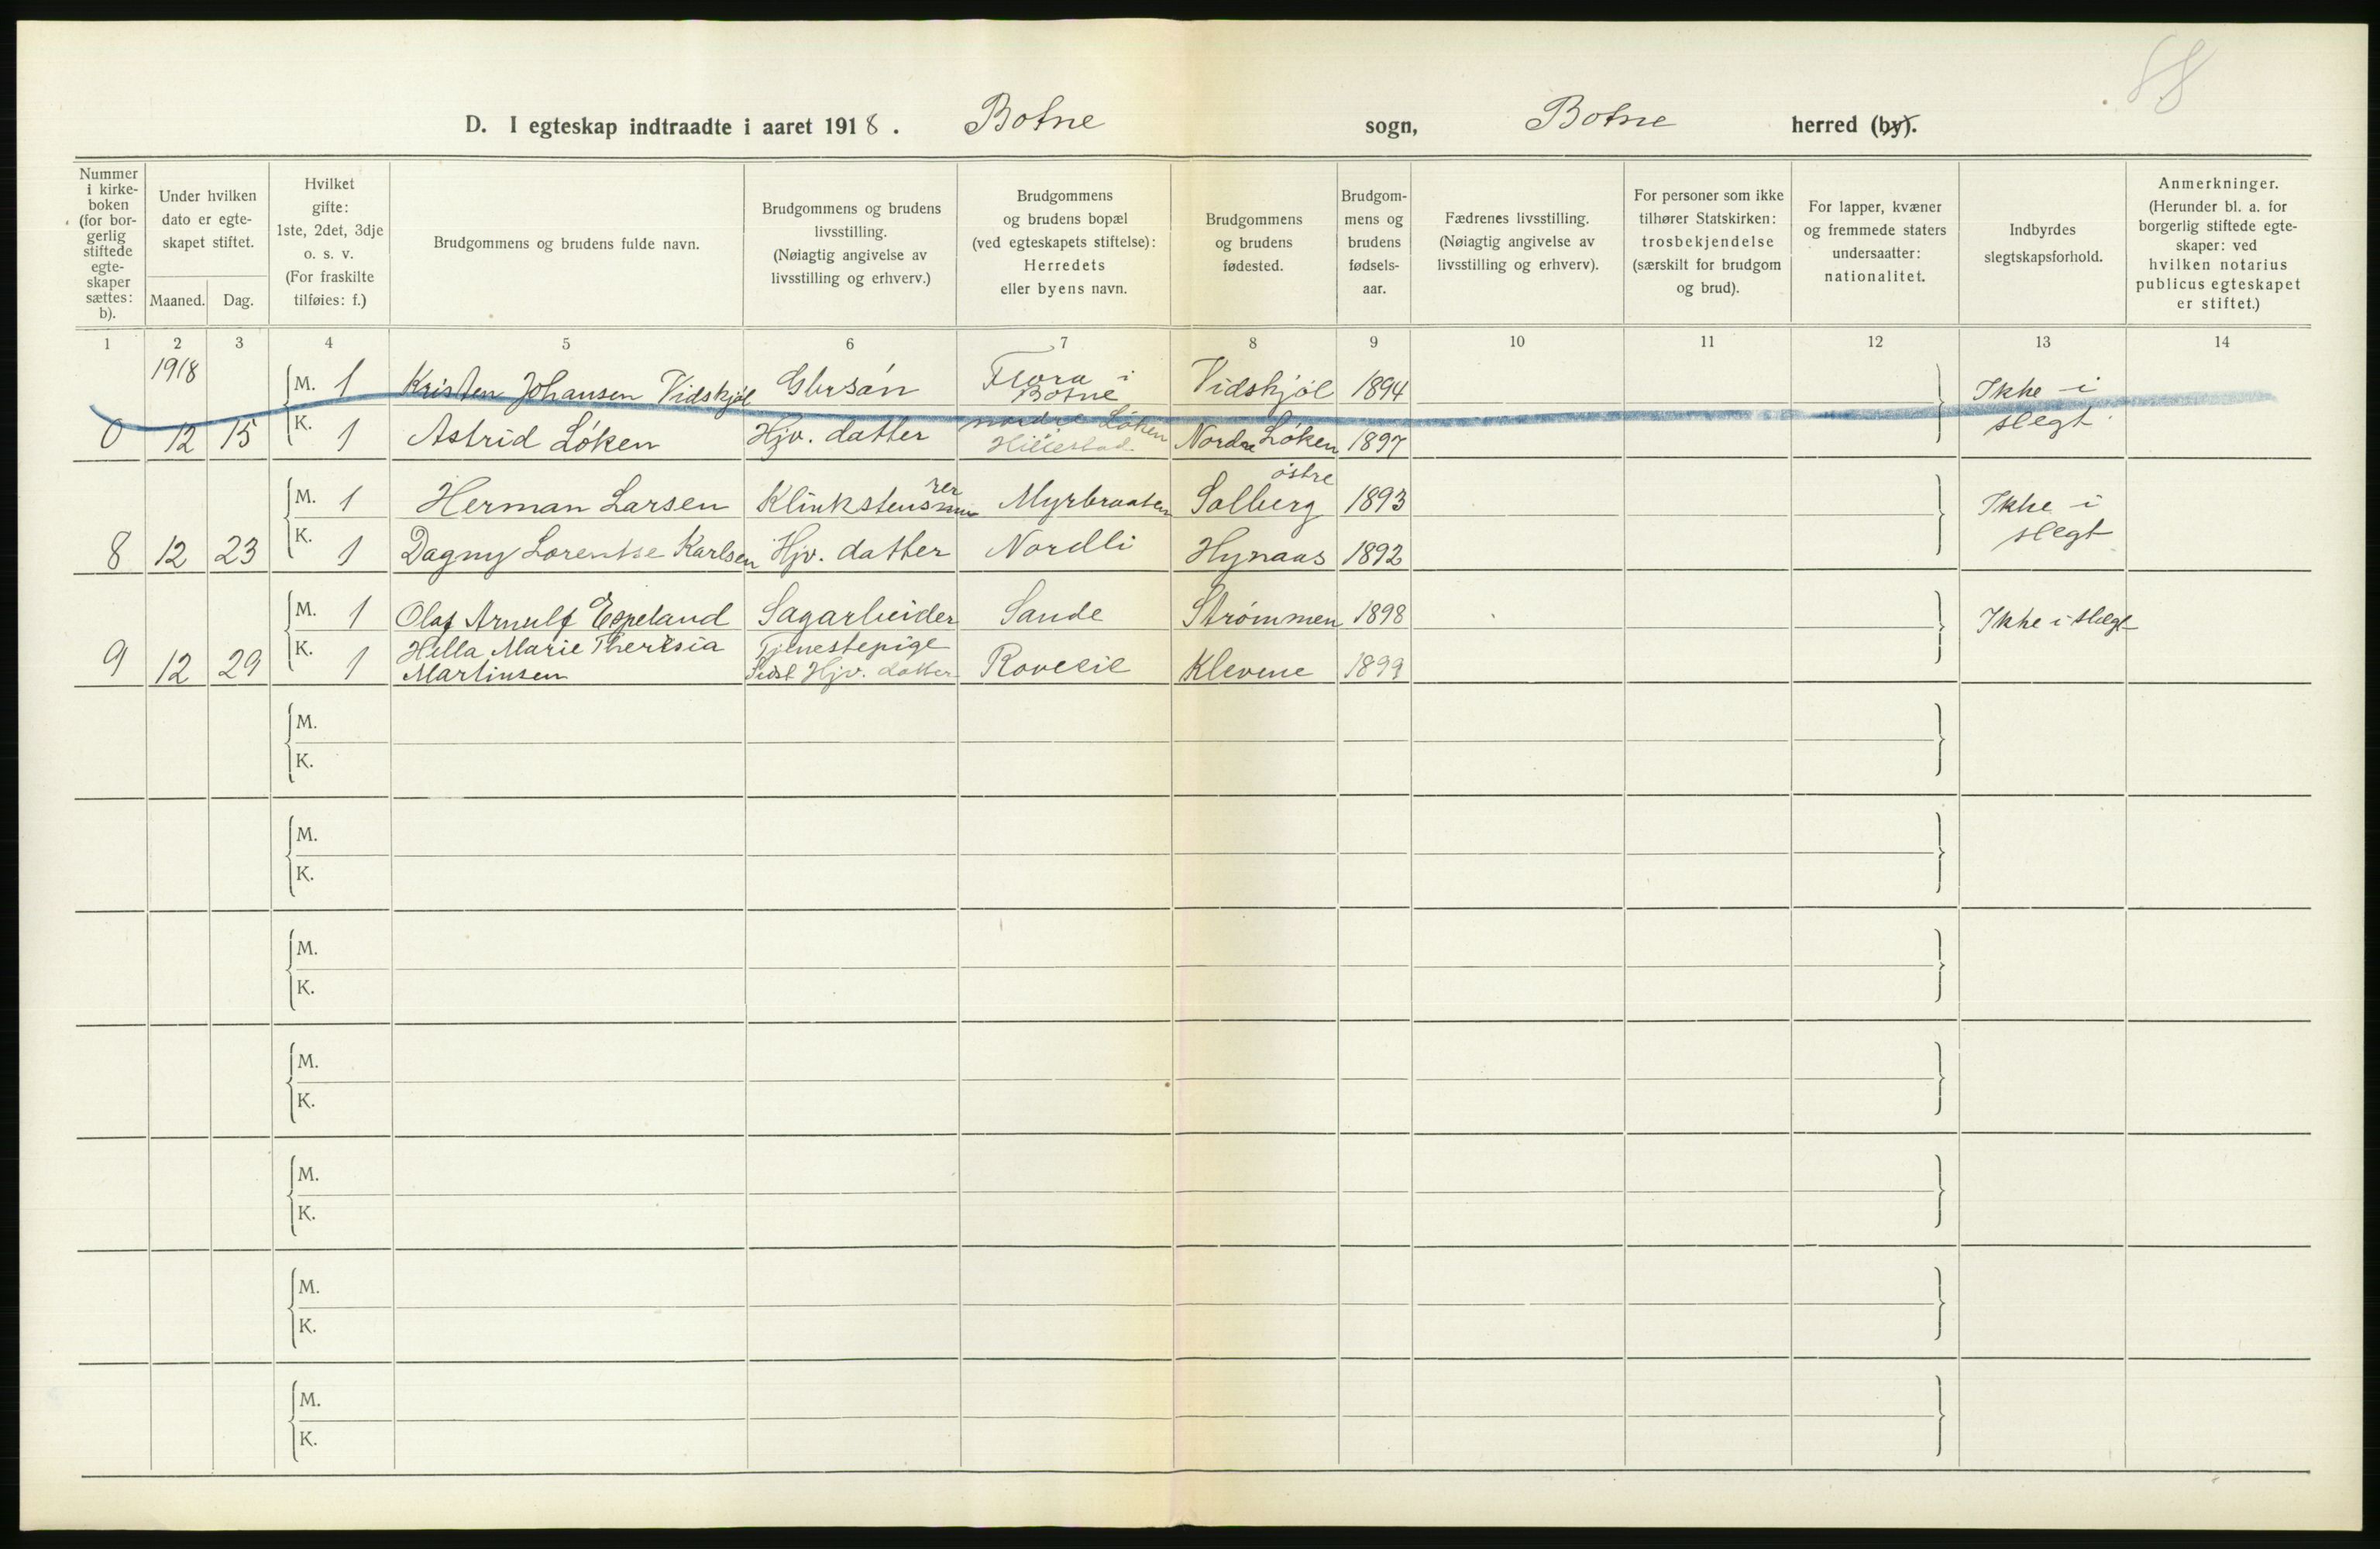 88
D. I egteskap indtraadte i aaret 1918. Botne sogn, Botne herred (by).
Nummer i kirkeboken (for borgerlig stiftede egteskaper sættes: b).
Under hvilken dato er egteskapet stiftet.
Maaned. Dag.
Hvilket gifte: 1ste, 2det, 3dje o. s. v. (For fraskilte tilføies: f.)
Brudgommens og brudens fulde navn.
Brudgommens og brudens livsstilling. (Nøiagtig angivelse av livsstilling og erhverv.)
Brudgommens og brudens bopæl (ved egteskapets stiftelse): Herredets eller byens navn.
Brudgommens og brudens fødested.
Brudgommens og brudens fødselsaar.
Fædrenes livsstilling. (Nøiagtig angivelse av livsstilling og erhverv).
For personer som ikke tilhører Statskirken: trosbekjendelse (særskilt for brudgom og brud).
For lapper, kvæner og fremmede staters undersaatter: nationalitet.
Indbyrdes slegtskapsforhold.
Anmerkninger. (Herunder bl. a. for borgerlig stiftede egteskaper: ved hvilken notarius publicus egteskapet er stiftet.)
1 2 3 4 5 6 7 8 9 10 11 12 13 14
1918
M. 1 Kristen Johansen Vidskjøl Gbrsøn Flora i Botne Vidskjøl 1894 Ikke i slegt
0 12 15 K. 1 Astrid Løken Hjv. datter nordre Løken Hillestad Nordre Løken 1897
M. 1 Herman Larsen Klinkstens Myrbraaten Solberg østre 1893 Ikke i slegt
8 12 23 K. 1 Dagny Lorentse Karlsen Hjv. datter Nordli Hynaas 1892
M. 1 Olaf Arnulf Espeland Sagarbeider Sande Strømmen 1898 Ikke i slegt
9 12 29 K. 1 Hella Marie Theresia Martinsen Tjenestepige Hjv. datter Rovelil Klevene 1899
M.
K.
M.
K.
M.
K.
M.
K.
M.
K.
M.
K.
M.
K.